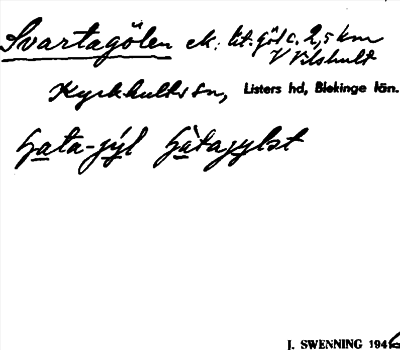 Svartagölen ek. lit. göl c. 2,5 km
V Vilshult
Kyrkhults sn, Listers hd, Blekinge län.
J. SWENNING 1946